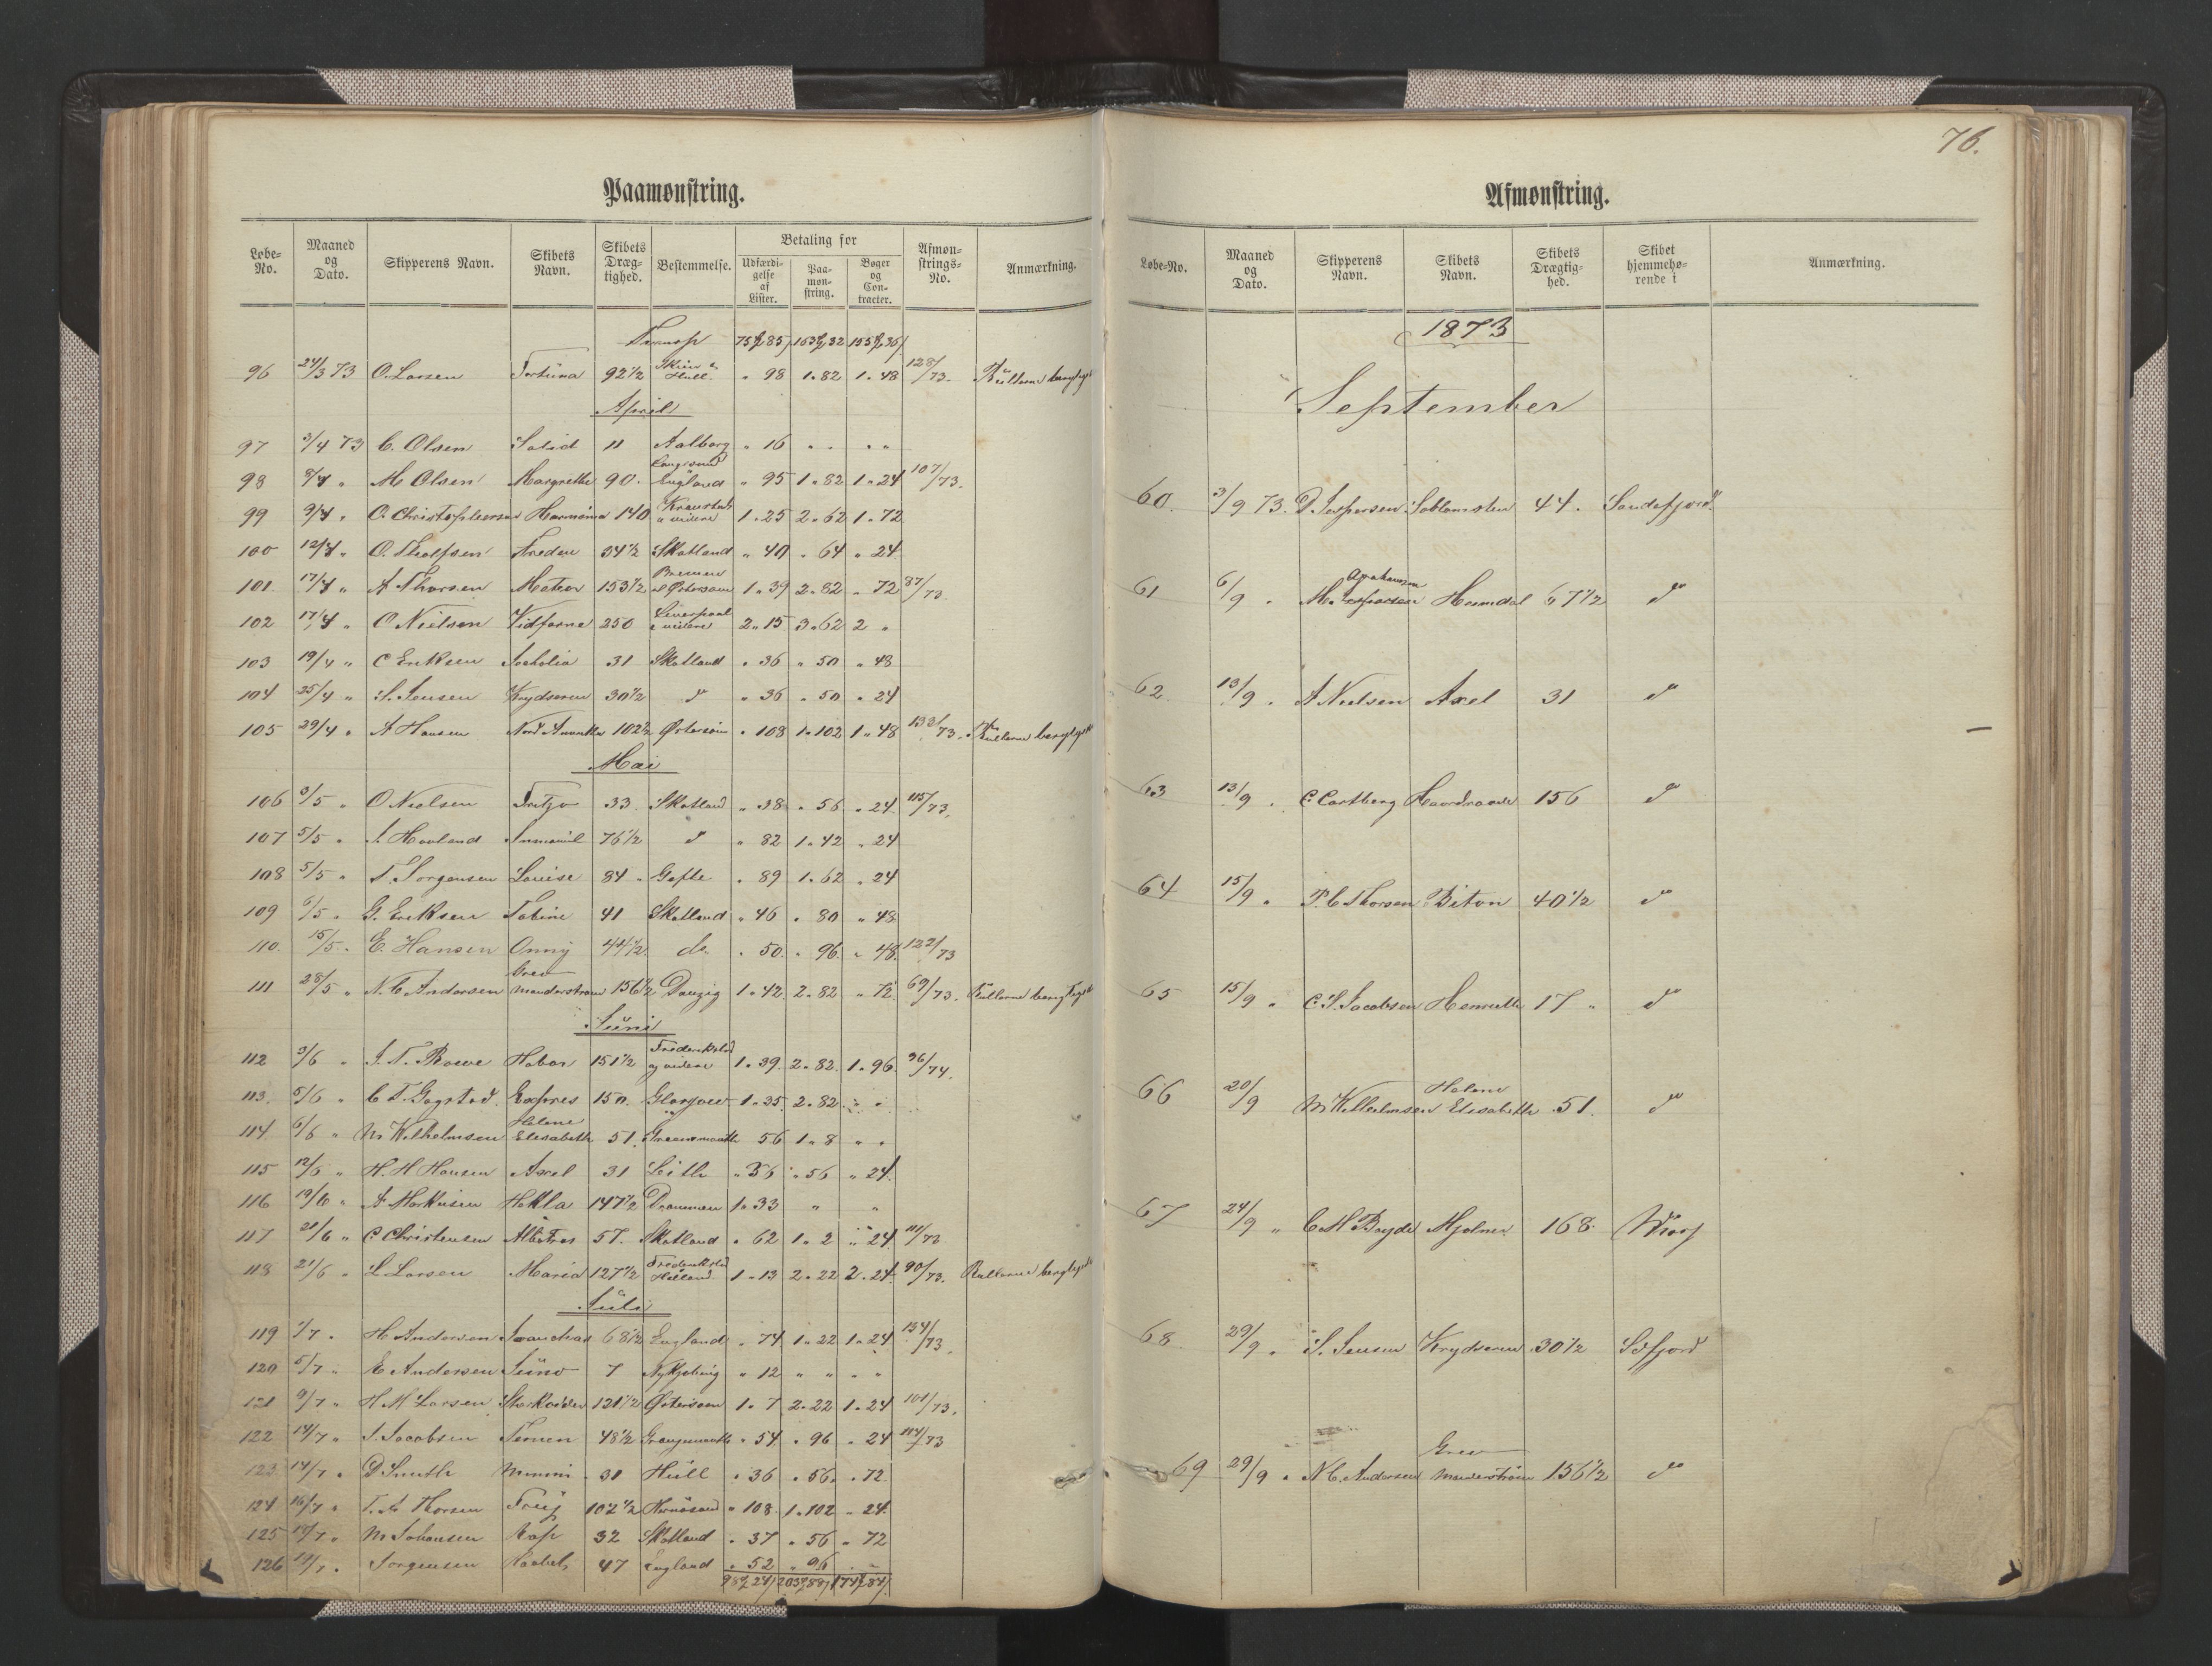 Paamønstring.
Løbe-No. Maaned og Dato. Skipperens Navn. Skibets Navn. Skibets Dræg-tighed. Bestemmelse. Betaling for Udfærdi-gelse af Lister. Paa-møn-string. Bøger og Con-tracter. Afmøn-strings-No. Anmærkning.
Transp 75 85 163 32 155 36
96 24/3 73 O. Larsen Fortuna 92 1/2 Skien Hull " 98 1 " 82 1 " 48 128/73. Rullerne
April
97 3/4 73 C. Olsen Solid 11 Aalborg " 16 " " " "
98 8/4 " M Olsen Margrethe 90 " Langesund England " 95 1 " 82 1 " 24 107/73.
99 9/4 " O. Christophersen Harmonia 140 1 " 25 2 " 62 1 " 72
100 12/4 " O. Tholfsen Freden 34 1/2 Skotland " 40 " 64 " 24
101 17/4 " A Thorsen Meteor 153 1/2 Bremen Østersøen 1 " 39 2 " 82 " 72 87/73.
102 17/4 " O Nielsen Vidfarne 250 Liverpool 2 " 15 3 " 62 2 "
103 19/4 " C Eriksen 31 Skotland " 36 " 50 " 48
104 25/4 " S. Jensen Krydseren 30 1/2 do " 36 " 50 " 24
105 29/4 " A Hansen 102 1/2 Østersøen " 108 1 " 102 1 " 48 133/73. Rullerne
Mai
106 3/5 " O Nielsen Fritjo 33 Skotland " 38 " 56 " 24 115/73.
107 5/5 " 76 1/2 do " 82 1 " 42 " 24
108 5/5 " Jorgensen Louise 84 " Gefle " 89 1 " 62 " 24
109 6/5 " G. Eriksen 41 Skotland " 46 " 80 " 48
110. 15/5 " E. Hansen Onny 44 1/2 do. " 50. " 96. " 48. 122/73
111 28/5 " N. C. Andersen Grev Manderstrøm 156 1/2 Danzig 1 " 42 2 " 82 " 72 69/73. Rullerne
Juni
112 3/6 " Habor 151 1/2 Frederikstad og videre 1 " 39. 2 " 82. 1 " 96. 36/74.
113. 5/6 " C T. Gogstad. Expres 150. Glasgow 1 " 35 2 " 82 " "
114 6/6 " M Wilhelmsen Helene Elisabeth 51. 56 1 " 8 " "
115 12/6 " H. H Hansen Axel 31 Leith " 36 " 56 " 24
116 19/6 " A Markusen Hekla 147 1/2 Drammen 1 " 33 " "
117 21/6 " C Christensen Albatros 57. Skotland " 62 1 " 2 " 24 111/73
118 21/6 " L Larsen Maria 127 1/2 Frederikstad Holland 1 " 13 2 " 22 2 " 24. 90/73. Rullerne
Juli
119 1/7 " H Andersen 68 1/2 England " 74 1 " 22 1 " 24 134/73.
120 5/7 " E Andersen Juno 7 Nykjøbing " 12 " " " "
121 9/7 " H. M Larsen Sterkodder 121 1/2 Østersøen 1 " 7 2 " 22 1 " 24 101/73.
122 14/7 " J. Jacobsen Ternen 48 1/2 Grangemouth " 54 " 96 " 24 114/73
123 14/7 " D Smith Minni 31 Hull " 36 " 56 " 72
124 16/7 " T. A Thorsen Frey 102 1/2 Hernøsand " 108 1 " 102 " 24
125 17/7 " M Johansen Rap 32 Skotland " 37 " 56 " 72
126 19/7 " Jorgensen Haabet 47 England " 52 " 96 " "
98 24 203 88 174 84
76.
Afmønstring.
Løbe-No. Maaned og Dato. Skipperens Navn. Skibets Navn. Skibets Drægtig-hed. Skibet hjemmehø-rende i Anmærkning.
1873
September
60. 3/9 73. D. Jespersen 44 " Sandefjord.
61 6/9 " M. Abrahamsen Heimdal 67 1/2 do
62 13/9 " A Nielsen Axel 31 do
63 13/9 " C. Carlberg Haardraade 156 do
64 15/9 " P. C Thorsen 40 1/2 do
65 15/9 " C. S. Jacobsen Henriette 17 " do
66 20/9 M Wilhelmsen Helene Elisabeth 51. do
67 24/9 " C. M Bryde Mjølner 168.
68 29/9 " S. Jensen Krydseren 30 1/2 Sdfjord
69 29/9 " N C. Andersen Grev Manderstrøm 156 1/2 do